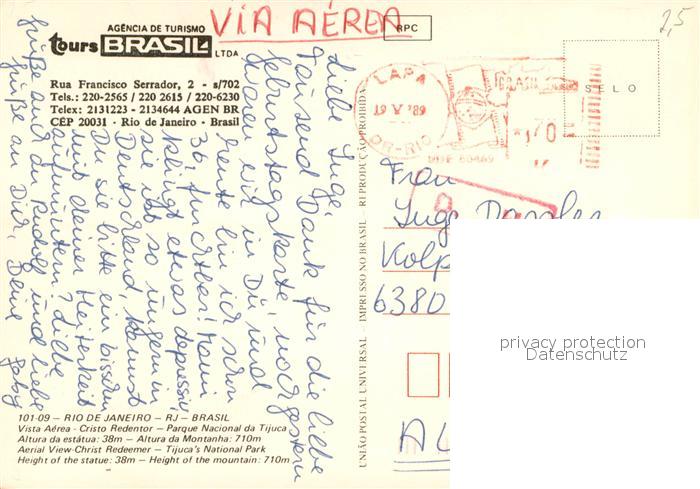 VIA AÉREA
RPC
2,5
AGÊNCIA DE TURISMO
tours BRASIL LTDA
Rua Francisco Serrador, 2 - s/702
Tels.: 220-2565 / 220 2615 / 220-6230
Telex: 2131223 - 2134644 AGEN BR
CEP 20031 - Rio de Janeiro - Brasil
LAPA
19 V 89
DR-RIO
BRASIL
70
SELO
Liebe Inge,
Tausend Dank für die liebe
Geburtstagskarte, noch gestern
waren wir in Dü und
heute bin ich schon
36, furchtbar! Mami
klingt etwas depressiv,
sie ist so ungern in
Deutschland, kannst
Du sie bitte ein bisschen
mit deiner Heiterkeit
aufmuntern? Liebe
Grüße auch an Rudolf und liebe
Grüße an Dich, Deine Gaby
Frau
Inge
Kolp
6380
UNIÃO POSTAL UNIVERSAL - IMPRESSO NO BRASIL - REPRODUÇÃO PROIBIDA
privacy protection
Datenschutz
101-09 - RIO DE JANEIRO - RJ - BRASIL
Vista Aérea - Cristo Redentor - Parque Nacional da Tijuca
Altura da estátua: 38m - Altura da Montanha: 710m
Aerial View-Christ Redeemer - Tijuca's National Park
Height of the statue: 38m - Height of the mountain: 710m